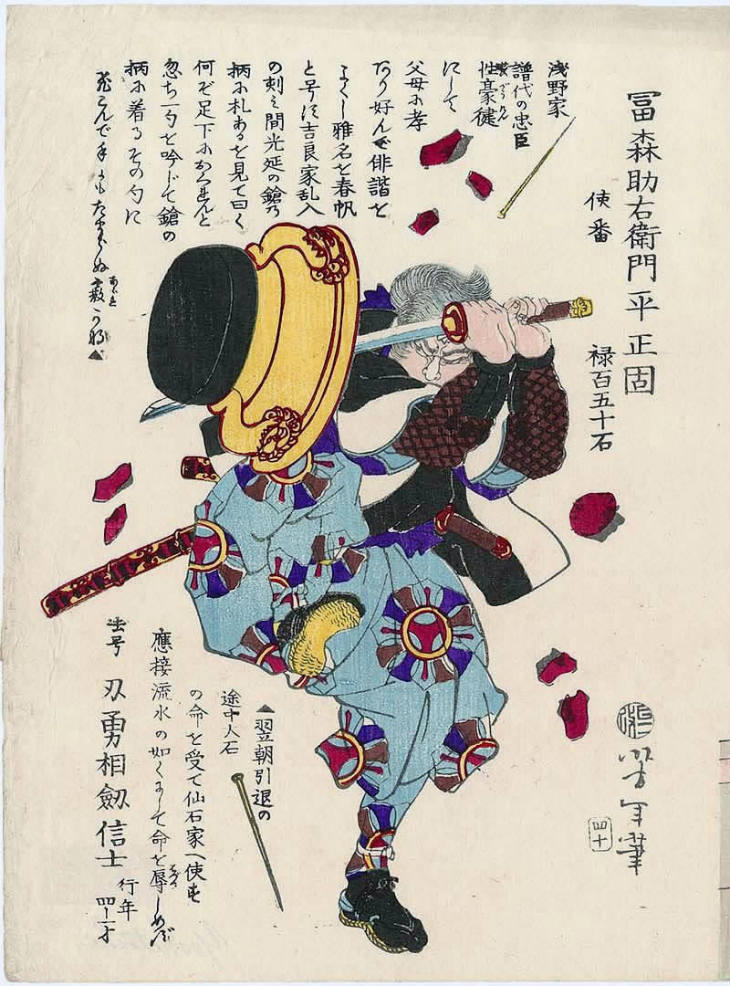 冨森助右衛門平正固
使番
禄百五十石
浅野家
譜代の忠臣
性豪健
にして
父母に孝
あり好んで俳諧を
よくし雅名を春帆
と号す吉良家乱入
の刻み間光延の鎗乃
柄に札あるを見て曰く
何ぞ足下に
忽ち一句を吟じて鎗の
柄に着るその句に
飛こんで手にもたまらぬ霰かな▲
▲翌朝引退の
途中大石
の命を受て仙石家へ使す
應接流水の如くにして命を辱しめず
法号 刄勇相劔信士
行年
四十
芳年筆